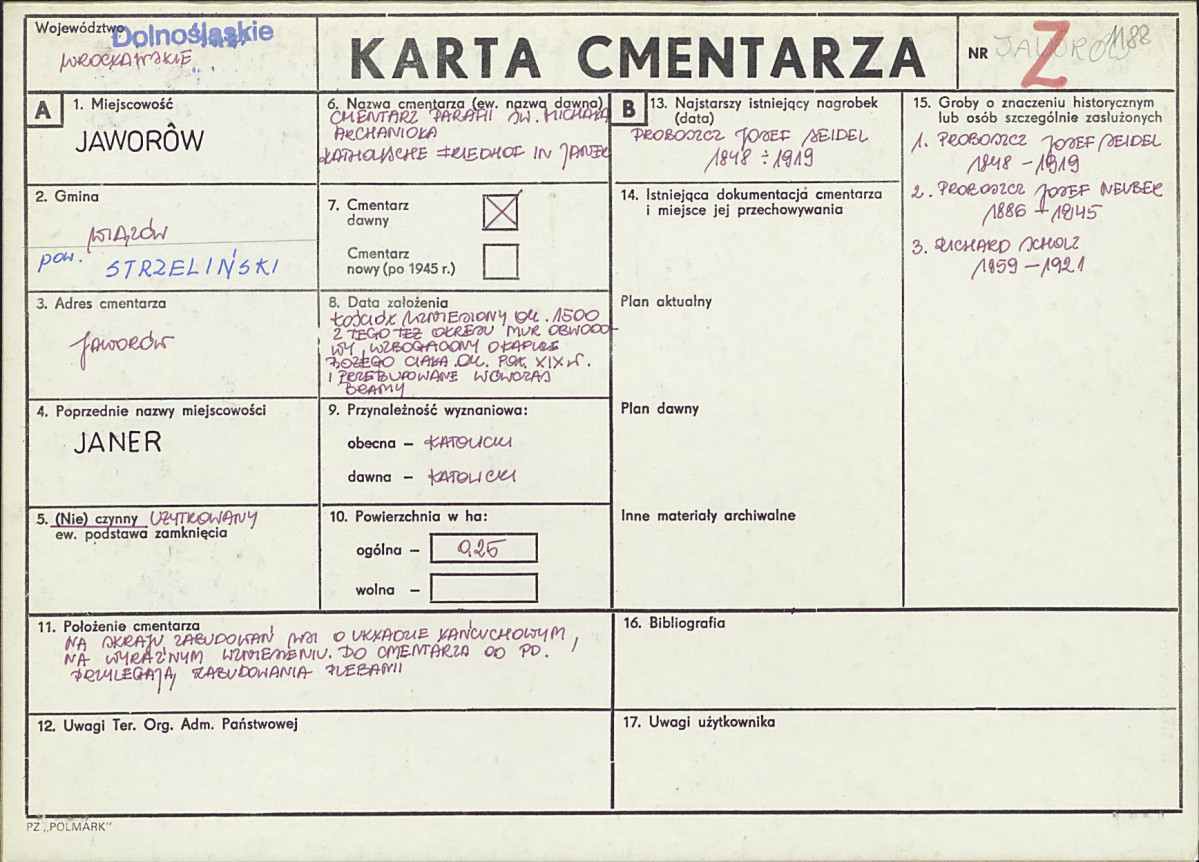 Województwo Dolnośląskie
WROCŁAWSKIE
KARTA CMENTARZA
NR JAWORÓW 1188
Z
A
1. Miejscowość
JAWORÓW
2. Gmina
WIĄZÓW
pow. STRZELIŃSKI
3. Adres cmentarza
JAWORÓW
4. Poprzednie nazwy miejscowości
JANER
5. (Nie) czynny UŻYTKOWANY
ew. podstawa zamknięcia
6. Nazwa cmentarza (ew. nazwa dawna)
CMENTARZ PARAFII ŚW. MICHAŁA
ARCHANIOŁA
KATHOLISCHE FRIEDHOF IN JANER
7. Cmentarz
dawny
Cmentarz
nowy (po 1945 r.)
8. Data założenia
KOŚCIÓŁ WZNIESIONY OK. 1500
Z TEGO TEŻ OKRESU MUR OBWODO-
WY, WZBOGACONY O KAPLICE
BOŻEGO CIAŁA OK. POŁ. XIX W.
I PRZEBUDOWANE WÓWCZAS
BRAMY
9. Przynależność wyznaniowa:
obecna – KATOLICKI
dawna – KATOLICKI
10. Powierzchnia w ha:
ogólna – 0,25
wolna –
11. Położenie cmentarza
NA SKRAJU ZABUDOWAŃ WSI O UKŁADZIE ŁAŃCUCHOWYM,
NA WYRAŹNYM WZNIESIENIU. DO CMENTARZA OD PD.
PRZYLEGAJĄ ZABUDOWANIA PLEBANII
12. Uwagi Ter. Org. Adm. Państwowej
B
13. Najstarszy istniejący nagrobek
(data)
PROBOSZCZ JOSEF SEIDEL
1848 ÷ 1919
14. Istniejąca dokumentacja cmentarza
i miejsce jej przechowywania
Plan aktualny
Plan dawny
Inne materiały archiwalne
15. Groby o znaczeniu historycznym
lub osób szczególnie zasłużonych
1. PROBOSZCZ JOSEF SEIDEL
1848 – 1919
2. PROBOSZCZ JOSEF NEUBER
1886 – 1945
3. RICHARD SCHOLZ
1859 – 1921
16. Bibliografia
17. Uwagi użytkownika
PZ „POLMARK"